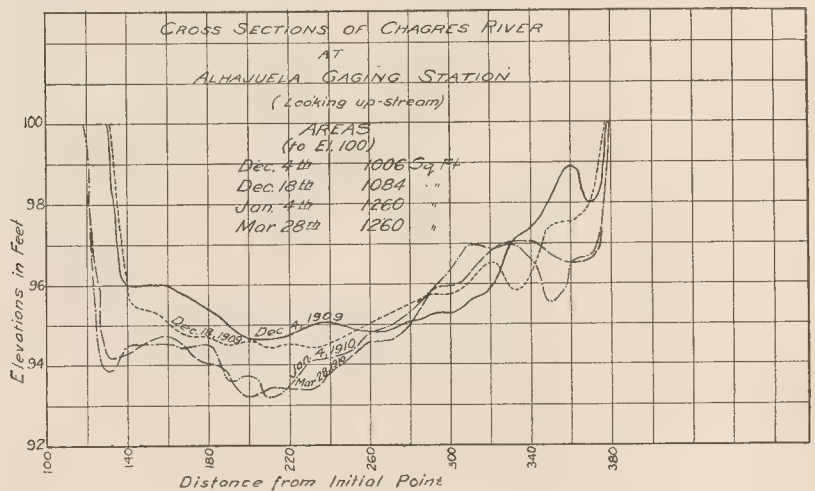 CROSS SECTIONS OF CHAGRES RIVER
AT
ALHAJUELA GAGING STATION
(Looking up-stream)
AREAS
(to El. 100)
Dec. 4th 1006 Sq Ft
Dec. 18th 1084 "
Jan. 4th 1260 "
Mar 28th 1260 "
100
98
96
94
92
Elevations in Feet
Dec. 18, 1909
Dec 4, 1909
Jan. 4, 1910
Mar 28, 1910
100
140
180
220
260
300
340
380
Distance from Initial Point